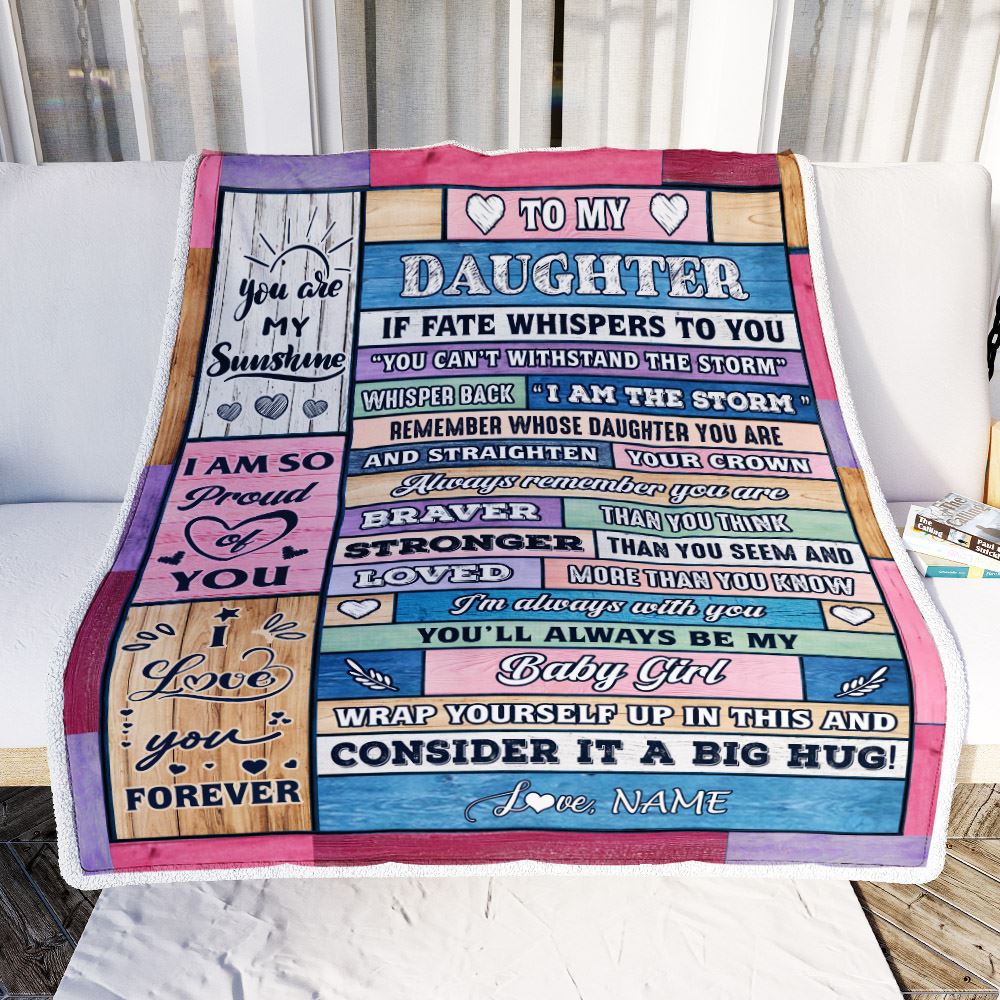 You are
MY
Sunshine
I AM SO
Proud
of
YOU
I
Love
you
FOREVER
TO MY
DAUGHTER
IF FATE WHISPERS TO YOU
"YOU CAN'T WITHSTAND THE STORM"
WHISPER BACK "I AM THE STORM"
REMEMBER WHOSE DAUGHTER YOU ARE
AND STRAIGHTEN YOUR CROWN
Always remember you are
BRAVER THAN YOU THINK
STRONGER THAN YOU SEEM AND
LOVED MORE THAN YOU KNOW
I'm always with you
YOU'LL ALWAYS BE MY
Baby Girl
WRAP YOURSELF UP IN THIS AND
CONSIDER IT A BIG HUG!
Love, NAME
The
Calling